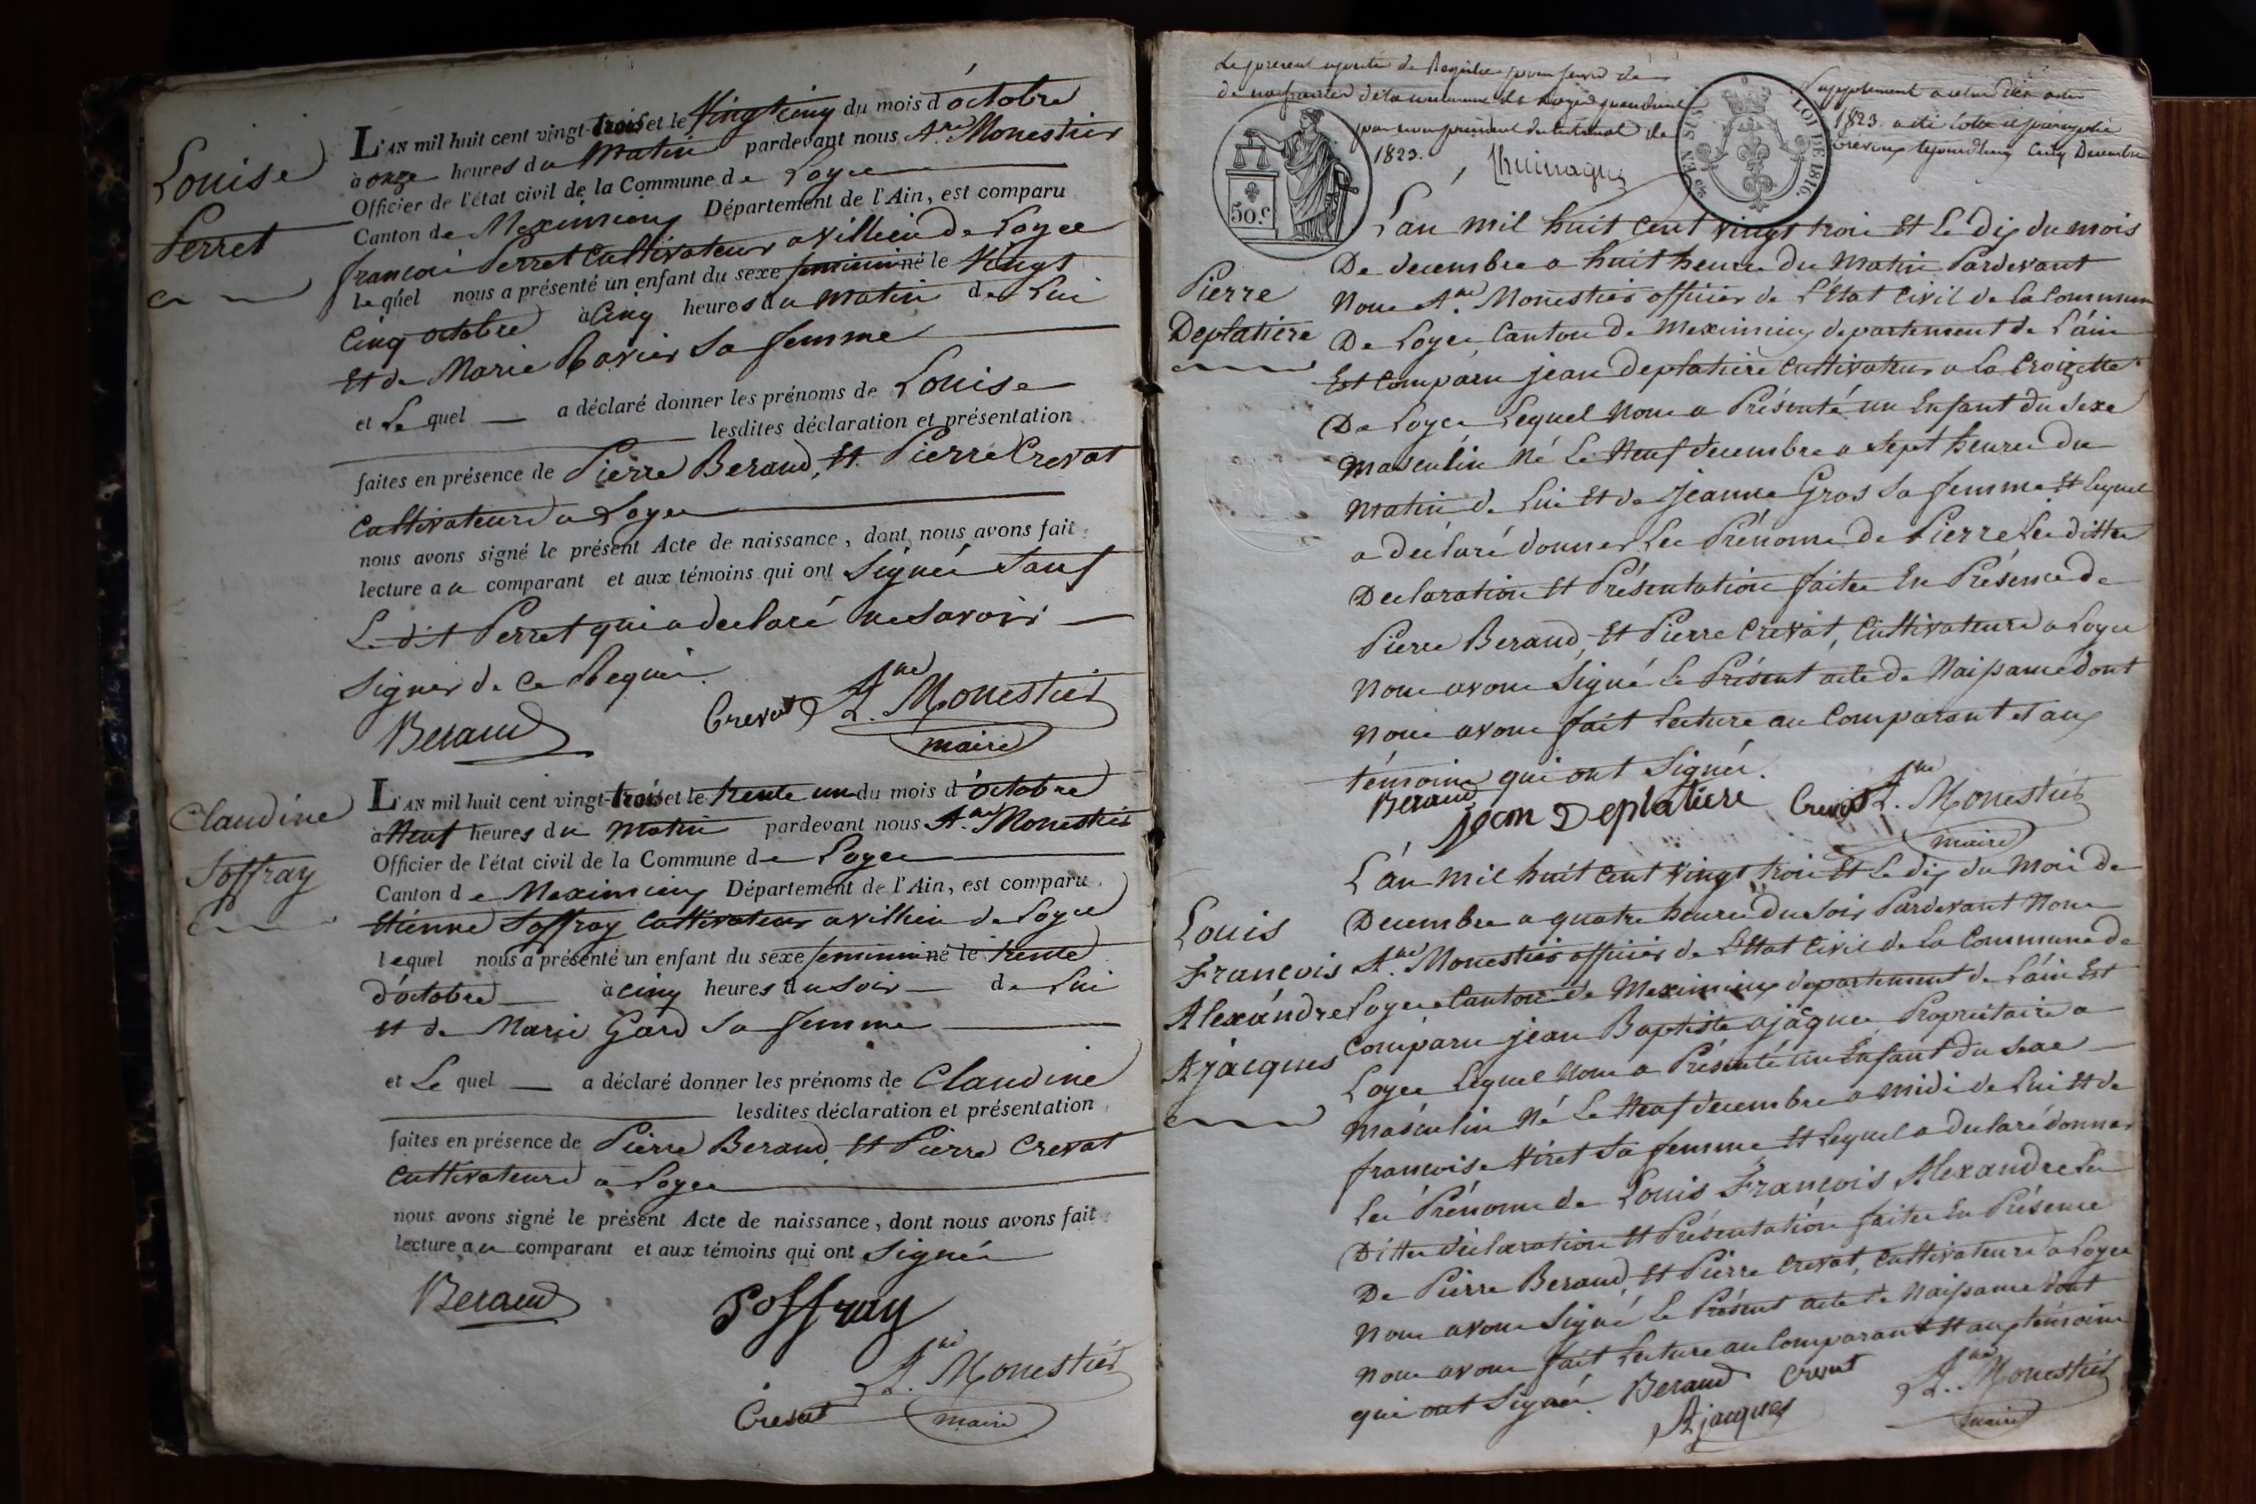 Louise
Perret
L'AN mil huit cent vingt-trois et le Vingt cinq du mois d'octobre
à onze heures du matin pardevant nous Ane Monestier
Officier de l'état civil de la Commune de Loyes
Canton de Meximieux Département de l'Ain, est comparu
françois Perret Cultivateur a villieu de Loyes
lequel nous a présenté un enfant du sexe feminin né le Vingt
Cinq octobre à Cinq heures du matin de Lui
Et de Marie Ravier Sa femme
et Le quel a déclaré donner les prénoms de Louise
lesdites déclaration et présentation
faites en présence de Pierre Beraud, Et Pierre Crevat
Cultivateurs a Loyes
nous avons signé le présent Acte de naissance, dont nous avons fait
lecture au comparant et aux témoins qui ont Signés Sauf
Le dit Perret qui a declaré ne Savoir
Signer de Ce Requis.
Beraud Crevat Ane Monestier
maire
Claudine
Soffray
L'AN mil huit cent vingt-trois et le trente un du mois d'octobre
à Neuf heures du matin pardevant nous Ane Monestier
Officier de l'état civil de la Commune de Loyes
Canton de Meximieux Département de l'Ain, est comparu
Etienne Soffray Cultivateur a villieu de Loyes
lequel nous a présenté un enfant du sexe feminin né le trente
d'octobre à cinq heures du soir de Lui
et de Marie Gard Sa femme
et Le quel a déclaré donner les prénoms de Claudine
lesdites déclaration et présentation
faites en présence de Pierre Beraud Et Pierre Crevat
Cultivateurs a Loyes
nous avons signé le présent Acte de naissance, dont nous avons fait
lecture au comparant et aux témoins qui ont Signés
Beraud Soffray
Ane Monestier
Crevat maire
Le présent de Registre
de naissances de la commune de Loyes
par nous président du tribunal de
1823.
supplement a celui des actes
1823 a été cotté et paraphé
Trevoux le cinq Decembre
50 c.
EN SUS
LOI DE 1816.
Pierre
Deplatiere
L'an mil huit Cent vingt trois Et Le dix du mois
De decembre a huit heures du Matin Pardevant
Nous Ane Monestier officier de L'Etat Civil de La Commune
De Loyes Canton de Meximieux departement de L'ain
Est Comparu jean Deplatiere Cultivateur a La Croizette
De Loyes Lequel Nous a Présenté un Enfant du Sexe
Masculin Né Le Neuf decembre a Sept heures du
Matin de Lui Et de Jeanne Gros Sa femme Et Lequel
a déclaré donner Les Prénoms de Pierre Les dittes
Declaration Et Présentation faites En Présence de
Pierre Beraud, Et Pierre Crevat, Cultivateurs a Loyes
Nous avons Signé Le Présent acte de Naissance dont
Nous avons fait Lecture au Comparant et aux
témoins qui ont Signés.
Beraud Jean Deplatiere Crevat Ane Monestier
maire
Louis
Francois
Alexandre
Ajacques
L'an mil huit Cent Vingt trois Et Le dix du Mois de
Decembre a quatre heures du Soir Pardevant Nous
Ane Monestier officier de L'Etat Civil de La Commune de
Loyes Canton de Meximieux departement de L'ain Est
Comparu jean Baptiste ajaques Propriétaire a
Loyes Lequel Nous a Présenté un Enfant du Sexe
Masculin Né Le Neuf decembre a midi de Lui Et de
francoise Viret Sa femme Et Lequel a declaré donner
Les Prénoms de Louis Francois Alexandre Les
Dittes déclaration Et Présentation faites En Présence
De Pierre Beraud, Et Pierre Crevat, Cultivateurs a Loyes
Nous avons Signé Le Présent acte de Naissance dont
Nous avons fait Lecture au Comparant Et aux témoins
qui ont Signés. Beraud Crevat Ane Monestier
Ajacques maire